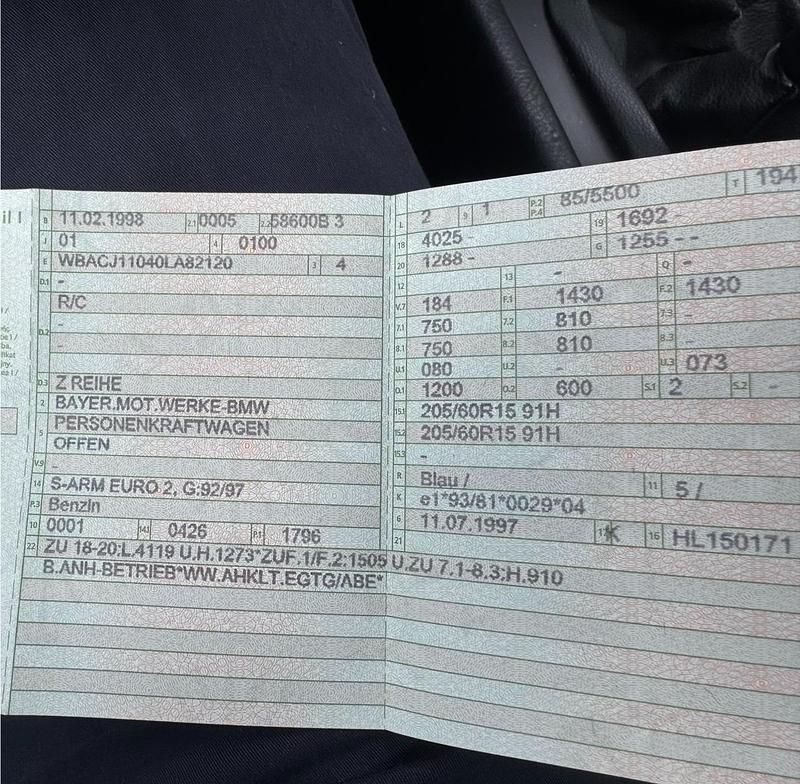 B 11.02.1998 2.1 0005 2.2 58600B 3
J 01 4 0100
E WBACJ11040LA82120 3 4
D.1 -
R/C
D.2 -
-
D.3 Z REIHE
2 BAYER.MOT.WERKE-BMW
5 PERSONENKRAFTWAGEN
OFFEN
V.9 -
14 S-ARM EURO 2, G:92/97
P.3 Benzin
10 0001 14.1 0426 P.1 1796
22 ZU 18-20:L.4119 U.H.1273*ZUF.1/F.2:1505 U.ZU 7.1-8.3:H.910
B.ANH-BETRIEB*WW.AHKLT.EGTG/ABE*
L 2 9 1 P.2 P.4 85/5500 T 194
18 4025 - 19 1692 -
20 1288 - G 1255 - -
12 13 - Q -
V.7 184 F.1 1430 F.2 1430
7.1 750 7.2 810 7.3 -
8.1 750 8.2 810 8.3 -
U.1 080 U.2 - U.3 073
O.1 1200 O.2 600 S.1 2 S.2 -
15.1 205/60R15 91H
15.2 205/60R15 91H
15.3 -
R Blau / 11 5 /
K e1*93/81*0029*04
6 11.07.1997 17 K 16 HL150171
21